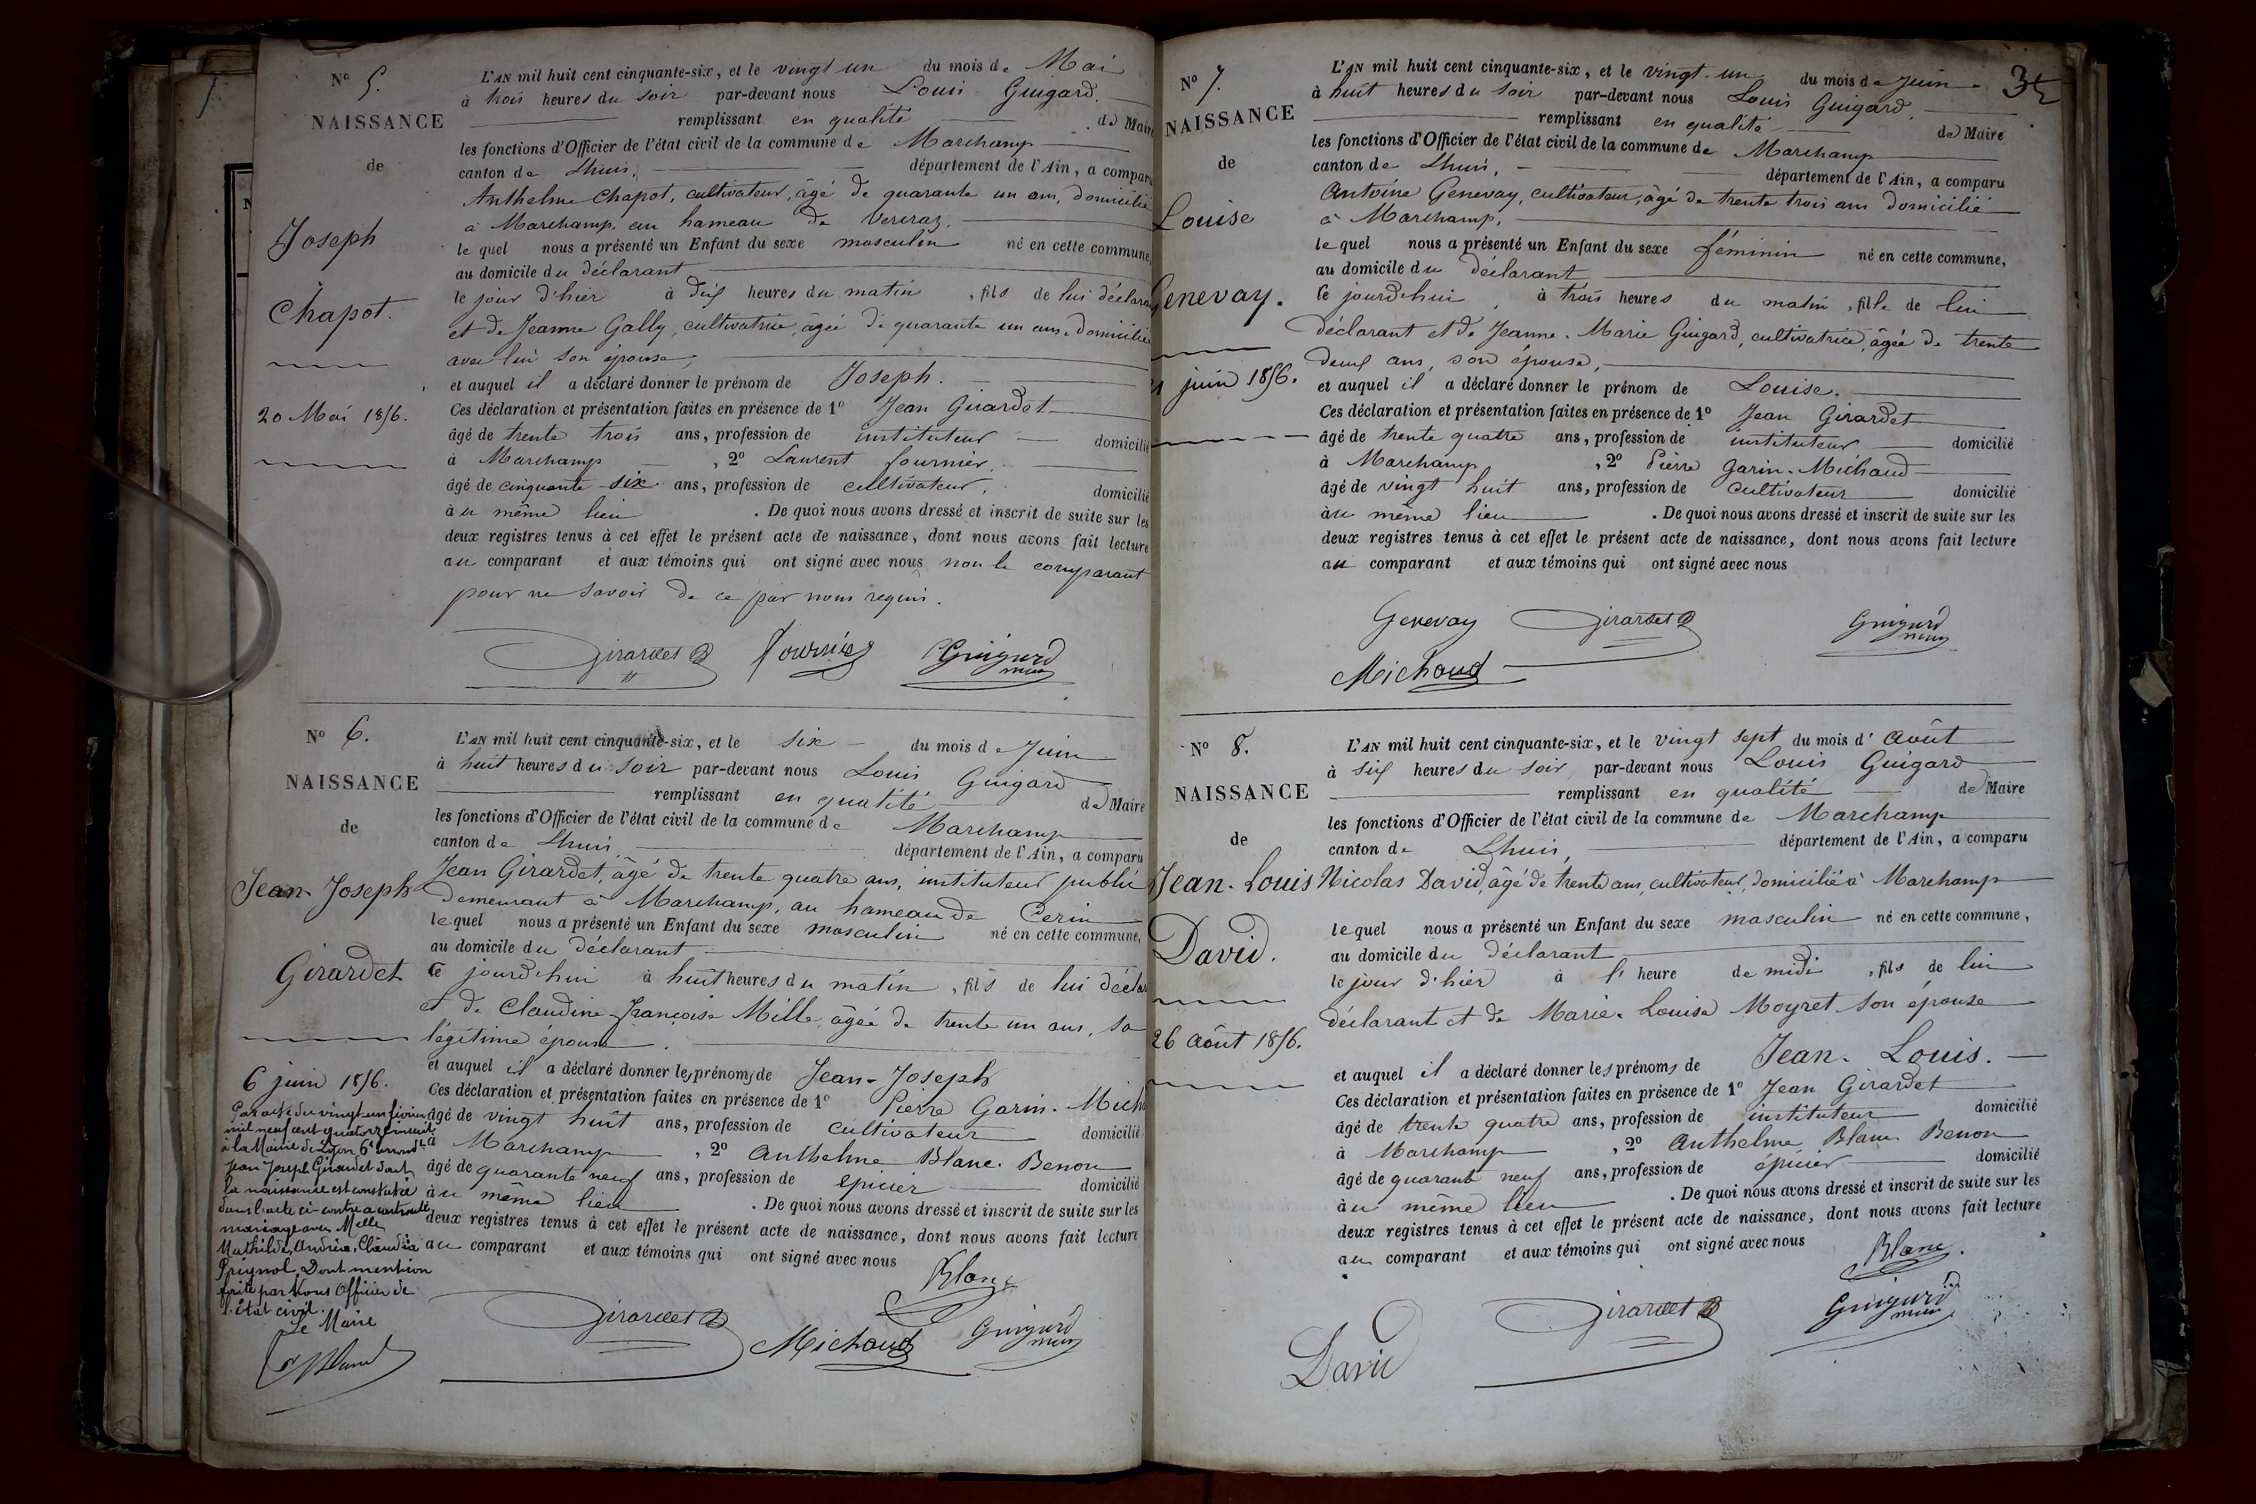 N° 5.
NAISSANCE
de
Joseph
Chapot.
20 Mai 1856.
L'AN mil huit cent cinquante-six, et le vingt un du mois de Mai
à trois heures du soir par-devant nous Louis Guigard.
remplissant en qualité de Maire
les fonctions d'Officier de l'état civil de la commune de Marchamp
canton de Lhuis, département de l'Ain, a comparu
Anthelme Chapot, cultivateur, âgé de quarante un ans, domicilié
à Marchamp, au hameau de
le quel nous a présenté un Enfant du sexe masculin né en cette commune,
au domicile du déclarant
le jour d'hier à dix heures du matin, fils de lui déclarant
et de Jeanne Gally, cultivatrice, âgée de quarante un ans, domiciliée
avec lui son épouse,
et auquel il a déclaré donner le prénom de Joseph.
Ces déclaration et présentation faites en présence de 1° Jean Girardet
âgé de trente trois ans, profession de instituteur domicilié
à Marchamp, 2° Laurent fournier,
âgé de cinquante six ans, profession de cultivateur, domicilié
au même lieu. De quoi nous avons dressé et inscrit de suite sur les
deux registres tenus à cet effet le présent acte de naissance, dont nous avons fait lecture
au comparant et aux témoins qui ont signé avec nous non le comparant
pour ne savoir de ce par nous requis.
Girardet Fournier Guigard
maire
N° 6.
NAISSANCE
de
Jean-Joseph
Girardet
6 juin 1856.
Par acte du vingt un février
mil neuf cent quatorze inscrit
à la Mairie de Lyon 6e arrondt
Jean Joseph Girardet dont
la naissance est constatée
dans l'acte ci-contre a contracté
mariage avec Melle
Mathilde, Andréa, Claudia
Prignol. Dont mention
faite par Nous Officier de
l'Etat civil.
Le Maire
L'AN mil huit cent cinquante-six, et le six du mois de Juin
à huit heures du soir par-devant nous Louis Guigard
remplissant en qualité de Maire
les fonctions d'Officier de l'état civil de la commune de Marchamp
canton de Lhuis, département de l'Ain, a comparu
Jean Girardet, âgé de trente quatre ans, instituteur public
demeurant à Marchamp, au hameau de Cerin
le quel nous a présenté un Enfant du sexe masculin né en cette commune,
au domicile du déclarant
ce jourd'hui à huit heures du matin, fils de lui déclar
et de Claudine Françoise Mille, âgée de trente un ans, sa
légitime épouse.
et auquel il a déclaré donner les prénoms de Jean-Joseph
Ces déclaration et présentation faites en présence de 1° Pierre Garin-Mich
âgé de vingt huit ans, profession de cultivateur domicilié
à Marchamp, 2° Anthelme Blanc-Benon
âgé de quarante neuf ans, profession de épicier domicilié
au même lieu. De quoi nous avons dressé et inscrit de suite sur les
deux registres tenus à cet effet le présent acte de naissance, dont nous avons fait lecture
au comparant et aux témoins qui ont signé avec nous
Blanc
Girardet Michaud Guigard
maire
35
N° 7.
NAISSANCE
de
Louise
Genevay.
juin 1856.
L'AN mil huit cent cinquante-six, et le vingt-un du mois de Juin
à huit heures du soir par-devant nous Louis Guigard.
remplissant en qualité de Maire
les fonctions d'Officier de l'état civil de la commune de Marchamp
canton de Lhuis, département de l'Ain, a comparu
Antoine Genevay, cultivateur, âgé de trente trois ans domicilié
à Marchamp,
le quel nous a présenté un Enfant du sexe féminin né en cette commune,
au domicile du déclarant
ce jourd'hui, à trois heures du matin, fille de lui
déclarant et de Jeanne-Marie Guigard, cultivatrice, âgée de trente
deux ans, son épouse,
et auquel il a déclaré donner le prénom de Louise.
Ces déclaration et présentation faites en présence de 1° Jean Girardet
âgé de trente quatre ans, profession de instituteur domicilié
à Marchamp, 2° Pierre Garin-Michaud
âgé de vingt huit ans, profession de cultivateur domicilié
au même lieu. De quoi nous avons dressé et inscrit de suite sur les
deux registres tenus à cet effet le présent acte de naissance, dont nous avons fait lecture
au comparant et aux témoins qui ont signé avec nous
Genevay Girardet Guigard
maire
Michaud
N° 8.
NAISSANCE
de
Jean-Louis
David.
26 Août 1856.
L'AN mil huit cent cinquante-six, et le vingt sept du mois d'Août
à six heures du soir par-devant nous Louis Guigard
remplissant en qualité de Maire
les fonctions d'Officier de l'état civil de la commune de Marchamp
canton de Lhuis, département de l'Ain, a comparu
Nicolas David, âgé de trente ans, cultivateur, domicilié à Marchamp
lequel nous a présenté un Enfant du sexe masculin né en cette commune,
au domicile du déclarant
le jour d'hier à l'heure de midi, fils de lui
déclarant et de Marie-Louise Moyret son épouse
et auquel il a déclaré donner les prénoms de Jean-Louis.
Ces déclaration et présentation faites en présence de 1° Jean Girardet
âgé de trente quatre ans, profession de instituteur domicilié
à Marchamp, 2° Anthelme Blanc Benon
âgé de quarante neuf ans, profession de épicier domicilié
au même lieu. De quoi nous avons dressé et inscrit de suite sur les
deux registres tenus à cet effet le présent acte de naissance, dont nous avons fait lecture
au comparant et aux témoins qui ont signé avec nous
Blanc.
Girardet Guigard
maire
David